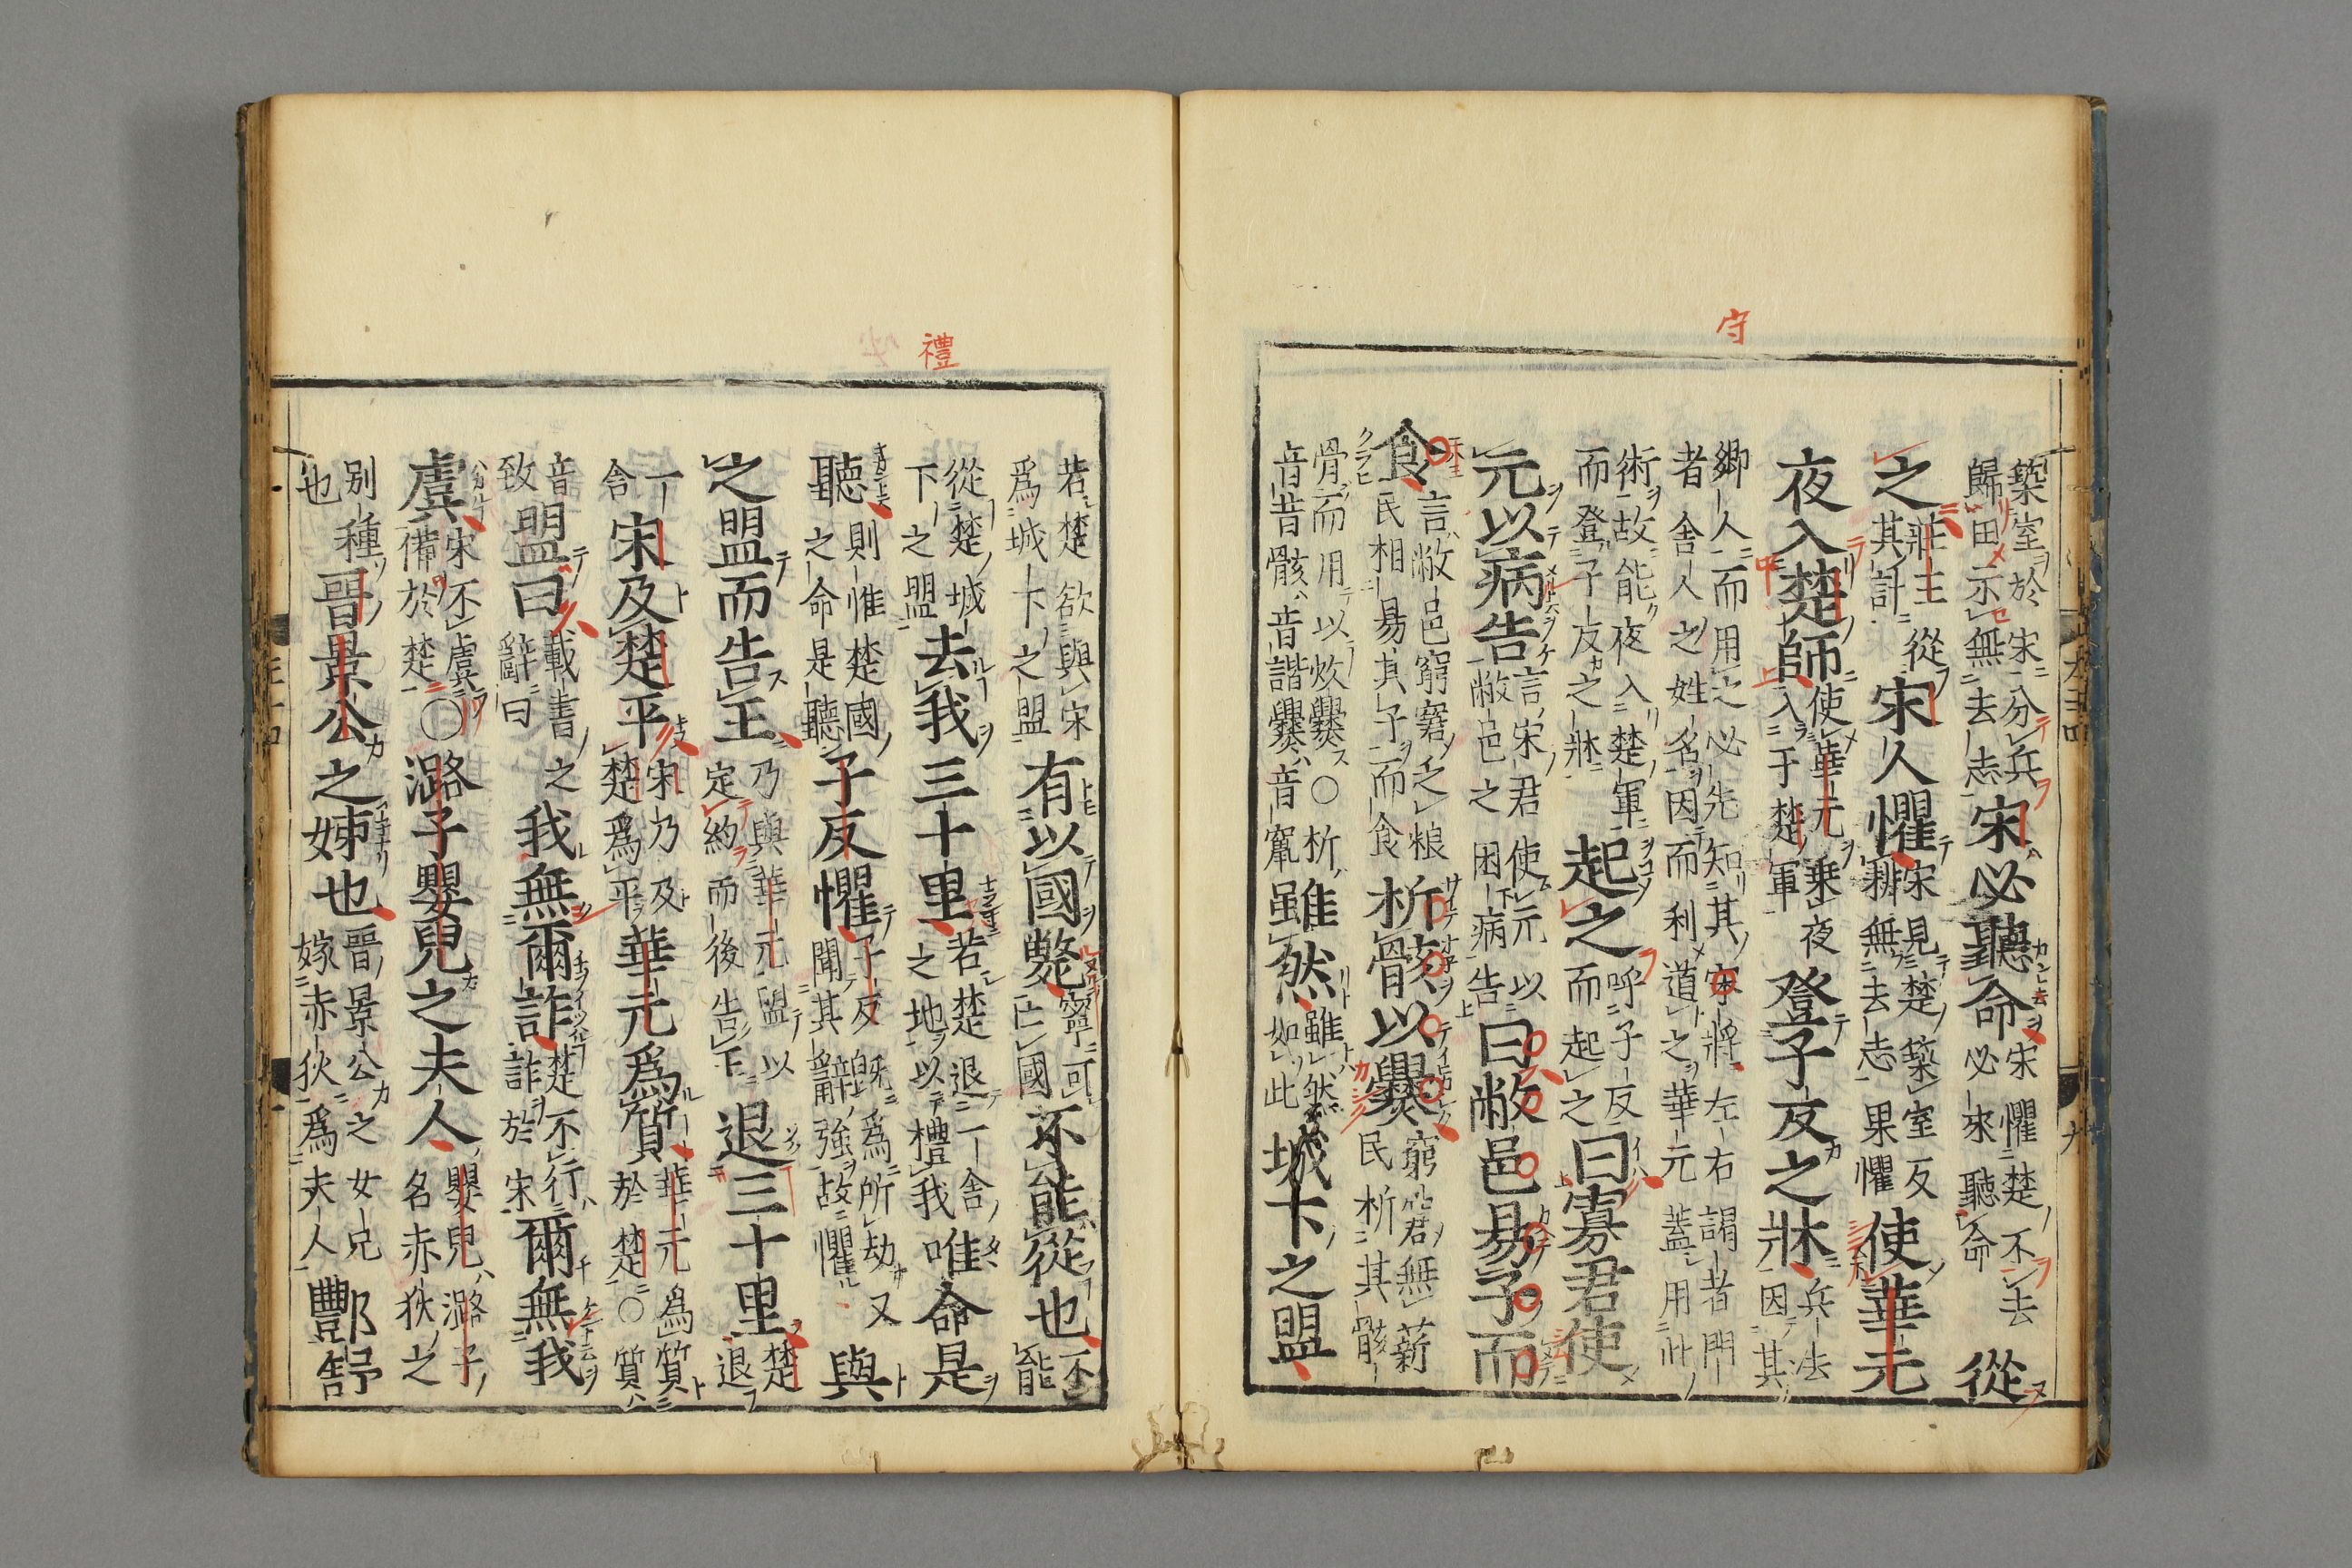 守
築室於宋分兵歸田示無去志宋必聽命宋懼楚不去必來聽命從
之莊王從其計宋人懼宋見楚築室反耕無去志果懼使華元
夜入楚師使華元乘夜入于楚軍登子反之牀兵法因其
鄉人而用之必先知其守將左右謁者門者舍人之姓名因而利道之華元蓋用此
術故能夜入楚軍而登子反之牀起之呼子反而起之曰寡君使
元以病告言宋君使元以敝邑之困病告曰敝邑易子而
食言敝邑窮窘乏粮民相易其子而食析骸以爨窮窘無薪民析其骸
骨而用以炊爨○析音昔骸音諧爨音竄雖然雖然如此城下之盟
禮
若楚欲與宋爲城下之盟有以國斃寧可亡國不能從也不能
從楚城下之盟去我三十里若楚退一舍之地以禮我唯命是
聽則惟楚國之命是聽子反懼子反既爲所劫又聞其辭強故懼與
之盟而告王乃與華元盟以定約而後告王退三十里楚退
一舍宋及楚平宋乃及楚爲平華元爲質華元爲質於楚○質
音致盟曰載書之辭曰我無爾詐楚不行詐於宋爾無我
虞宋不虞備於楚○潞子嬰兒之夫人嬰兒潞子名赤狄之
別種也晉景公之姊也晉景公之女兄嫁赤狄爲夫人酆舒